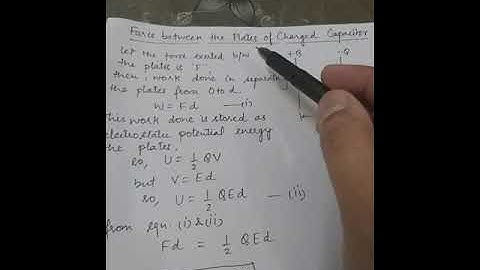 Force between the Plates of Charged Capacitor
Let the force exerted b/w +Q -Q
the plates is 'F'.
then, work done in separating
the plates from 0 to d.
W = Fd —(i)
This work done is stored as
electrostatic potential energy
the plates.
so, U = 1/2 QV
but V = Ed
so, U = 1/2 QEd — (ii)
from equ. (i) & (ii)
Fd = 1/2 QEd